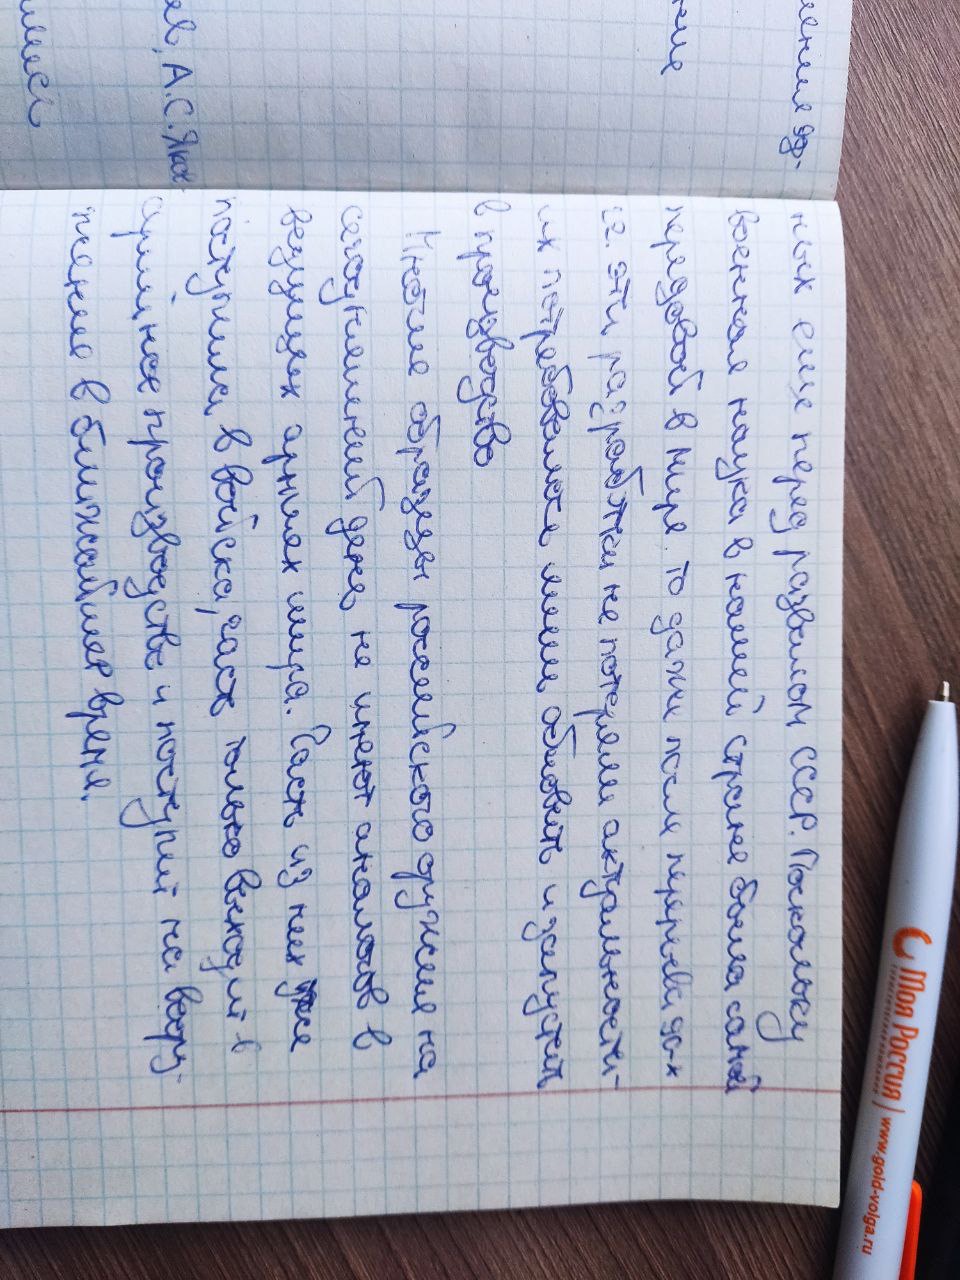 мении эф-
ние
ев, А.С. Яко
лись
ных еще перед развалом СССР. Поскольку
военная наука в нашей стране была самой
передовой в мире. то даже после перерыва в
гг. эти разработки не потеряли актуальности-
их потребовалось лишь обновить и запустить
в производство
Многие образцы российского оружия на
сегодняшний день не имеют аналогов в
ведущих армиях мира. Часть из них уже
поступила в войска, часть только выходит в
серийное производство и поступит на воору-
жение в ближайшее время.
Моя Россия
www.gold-volga.ru